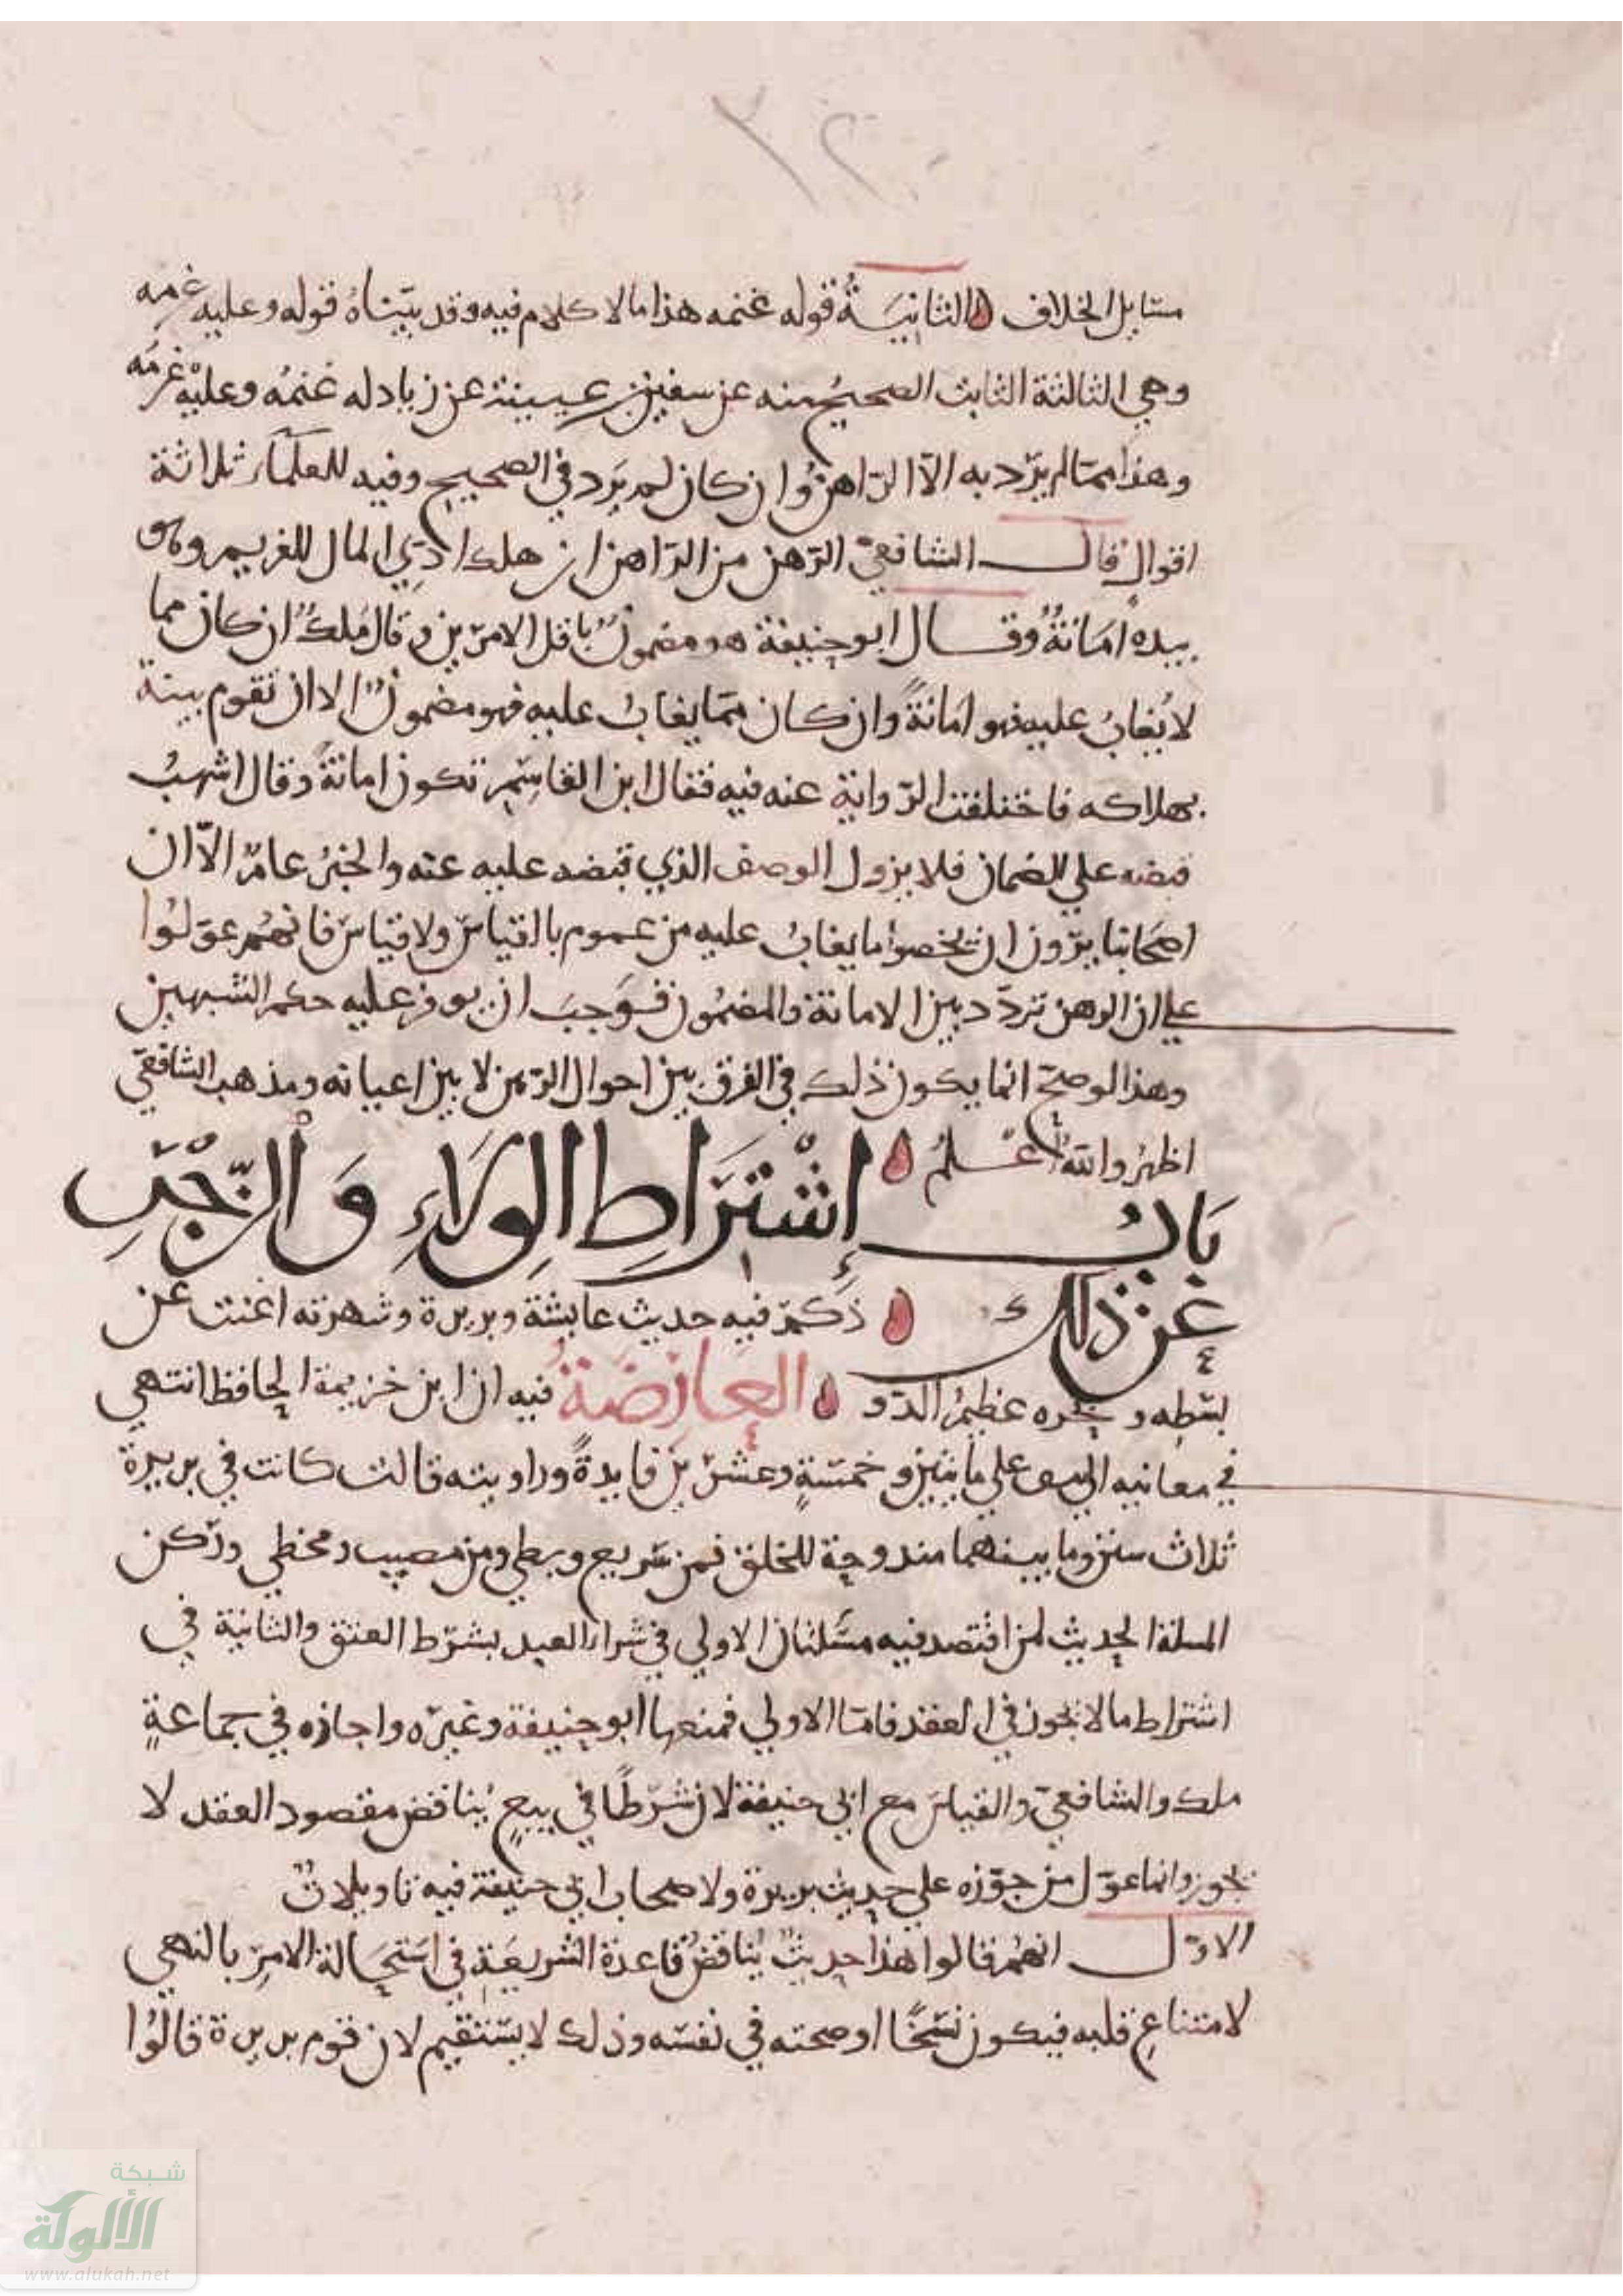 ٢٢
مسايل الخلاف الثانية قوله غنمه هذا ما لا كلام فيه وقد بيناه قوله وعليه غرمه
وهي الثالثة الثابت الصحيح منه عن سفين بن عيينة عن زياد له غنمه وعليه غرمه
وهذا مما لم يرد به الا الراهن وان كان لم يرد في الصحيح وفيه للعلماء ثلاثة
اقوال قال الشافعي الرهن من الراهن ان هلك ادي المال للغريم وهو
بيده امانة وقال ابو حنيفة هو مضمون باقل الامرين وقال ملك ان كان مما
لا يغاب عليه فهو امانة وان كان مما يغاب عليه فهو مضمون الا ان تقوم بينة
بهلاكه فاختلفت الرواية عنه فيه فقال ابن القاسم تكون امانة وقال اشهب
قبضه علي الضمان فلا يزول الوصف الذي قبضه عليه عنه والخبر عام الا ان
اصحابنا يرون ان يخصوا ما يغاب عليه من عموم بالقياس ولا قياس فانهم عولوا
علي ان الرهن تردد بين الامانة والمضمون فوجب ان يوفر عليه حكم الشبهين
وهذا لو صح انما يكون ذلك في الفرق بين احوال الرهن لا بين اعيانه ومذهب الشافعي
اظهر والله اعلم
باب إشتراط الولاء والزجر
عن ذلك ذكر فيه حديث عايشة وبريرة وشهرته اغنت عن
بسطه و بحره عظيم الدو العارضة فيه ان ابن خزيمة الحافظ انتهي
في معانيه الي علي مايتين وخمسة وعشرين فايدة وراويته قالت كانت في بريرة
ثلاث سنن وما بينهما مندوحة للخلق فمن سريع وبطي ومن مصيب ومخطي وركن
المسلة الحديث لمن اقتصد فيه مسئلتان الاولي في شراء العبد بشرط العتق والثانية في
اشتراط ما لا يجوز في العقد فاما الاولي فمنعها ابو حنيفة وغيره واجازه في جماعة
ملك والشافعي والقياس مع ابي حنيفة لان شرطا في بيع يناقض مقصود العقد لا
يجوز وانما عول من جوزه علي حديث بريرة ولاصحاب ابي حنيفة فيه تاويلات
الاول انهم قالوا هذا حديث يناقض قاعدة الشريعة في استحالة الامر بالنهي
لامتناع قلبه فيكون نسخا او صحته في نفسه وذلك لا يستقيم لان قوم بريرة قالوا
شبكة
الألوكة
www.alukah.net